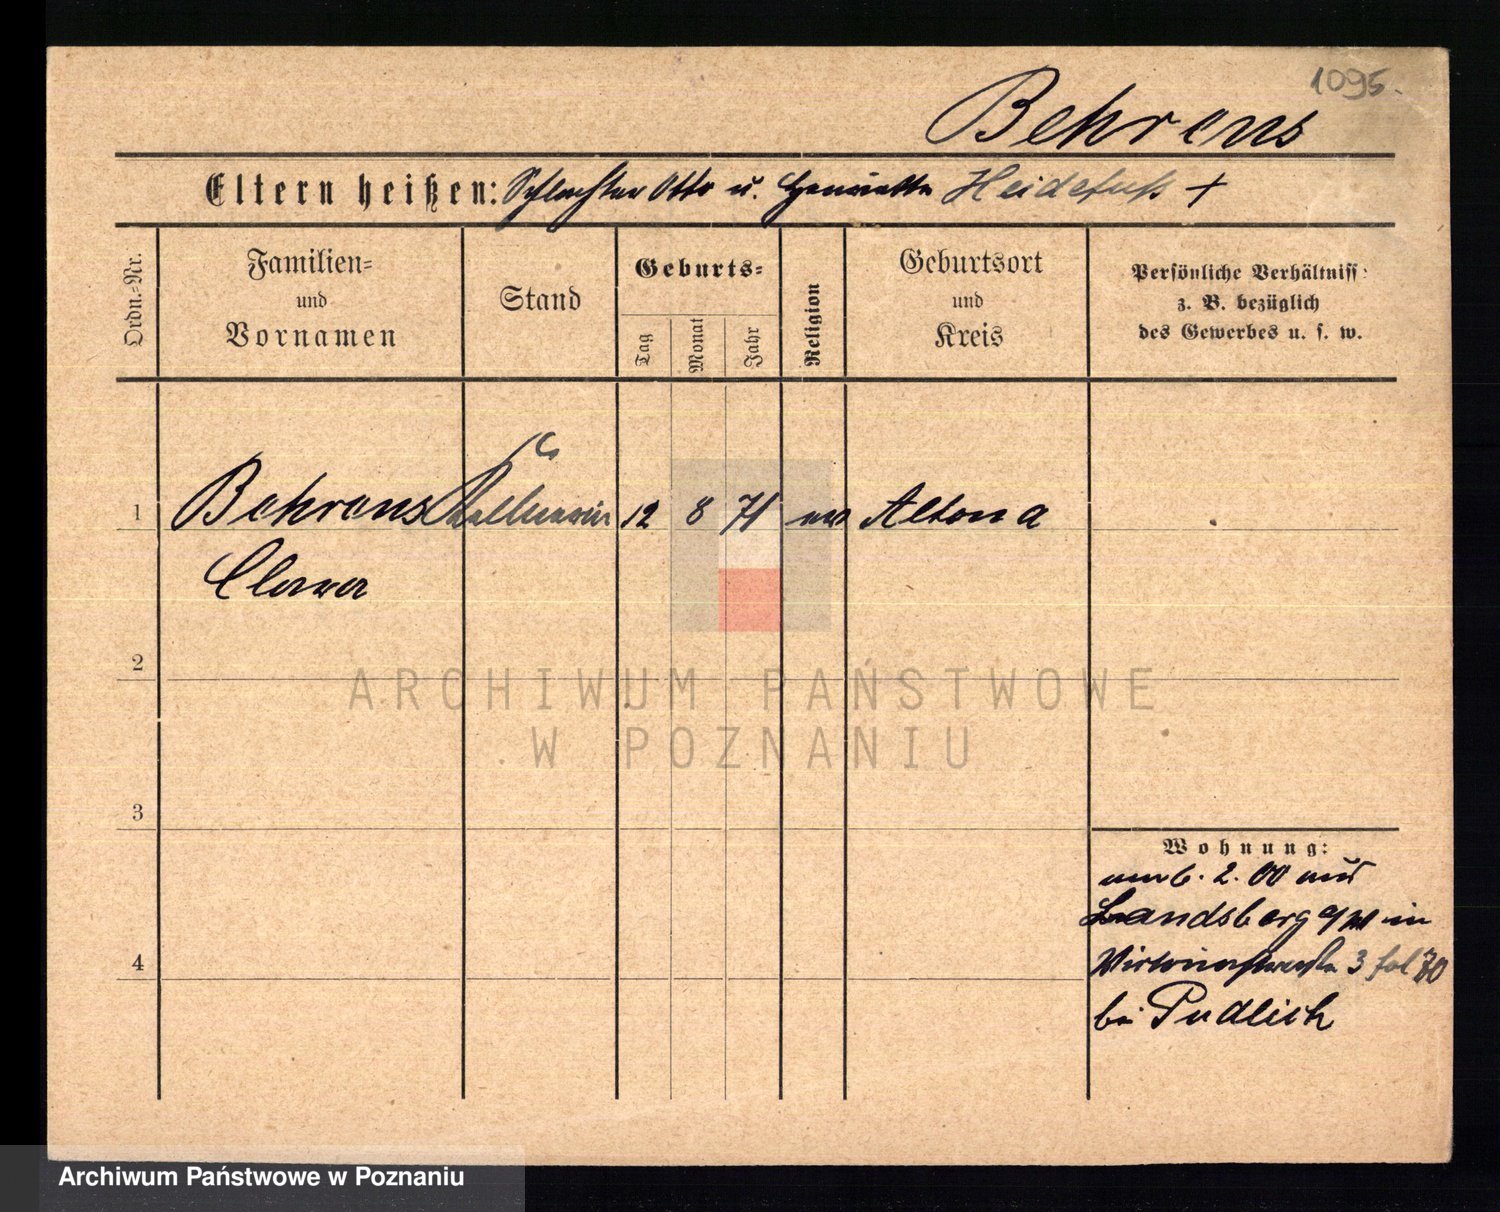 1095.
Behrens
Eltern heißen: Schlachter Otto u. Henriette Heidefuß +
Ordn.=Nr.
Familien=
und
Vornamen
Stand
Geburts=
Tag
Monat
Jahr
Religion
Geburtsort
und
Kreis
Persönliche Verhältniss
z. B. bezüglich
des Gewerbes u. s. w.
1 Behrens Kellnerin 12 8 71 ev Altona
Clara
2
ARCHIWUM PAŃSTWOWE
W POZNANIU
3
Wohnung:
6. 2. 00 aus
Landsberg a/W in
4
Victoriastraße 3 fol 70
bei Pudlich
Archiwum Państwowe w Poznaniu